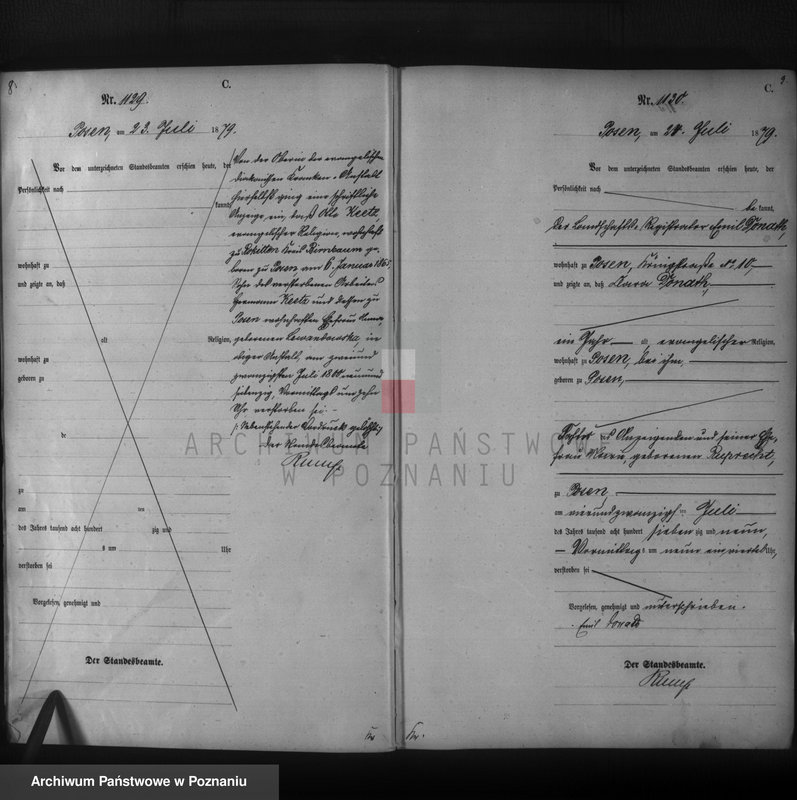 8.
C.
Nr. 1129.
Posen, am 23. Juli 1879.
Vor dem unterzeichneten Standesbeamten erschien heute, der
Persönlichkeit nach
kannt,
wohnhaft zu
und zeigte an, daß
alt Religion,
wohnhaft zu
geboren zu
de
zu
am ten
des Jahres tausend acht hundert zig und
s um Uhr
verstorben sei
Vorgelesen, genehmigt und
Der Standesbeamte.
Von der Oberin der evangelischen
Diakonissen Kranken-Anstalt
hierselbst ging eine schriftliche
Anzeige ein, daß Otto Keetz,
evangelischer Religion, wohnhaft
zu Kreis Birnbaum ge-
boren zu Posen am 6. Januar 1865,
Sohn des verstorbenen Arbeiters
Hermann Keetz und dessen zu
Posen wohnhaften Ehefrau
geborenen Lewandowska, in
obiger Anstalt, am zweiund
zwanzigsten Juli 1800 neun und
siebenzig, Vormittags um zehn
Uhr verstorben sei. –
Nebenstehender Vordruck gelöscht.
Der Standesbeamte
C.
Nr. 1130.
Posen, am 24. Juli 1879.
Vor dem unterzeichneten Standesbeamten erschien heute, der
Persönlichkeit nach
be kannt,
der Landschafts-Registrator Emil Donath,
wohnhaft zu Posen, Königstraße No 10,
und zeigte an, daß Clara Donath,
ein Jahr alt, evangelischer Religion,
wohnhaft zu Posen, bei ihm,
geboren zu Posen,
Tochter des Anzeigenden und seiner Ehe-
frau geborenen Ruprecht,
zu Posen,
am vierundzwanzigsten Juli
des Jahres tausend acht hundert sieben zig und neun,
Vormittags um neun einviertel Uhr,
verstorben sei
Vorgelesen, genehmigt und unterschrieben.
Emil Donath
Der Standesbeamte.
ARCHIWUM PAŃSTWOWE
W POZNANIU
Archiwum Państwowe w Poznaniu